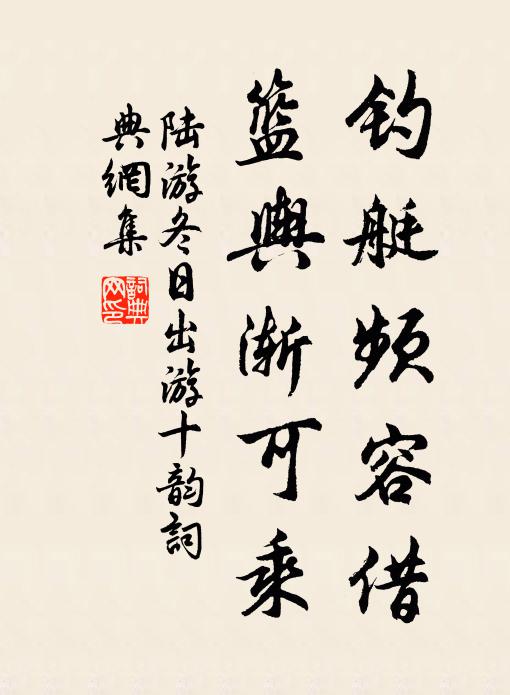 钓艇频容借
篮舆渐可乘
陆游冬日出游十韵詞
典網集
詞典
网印